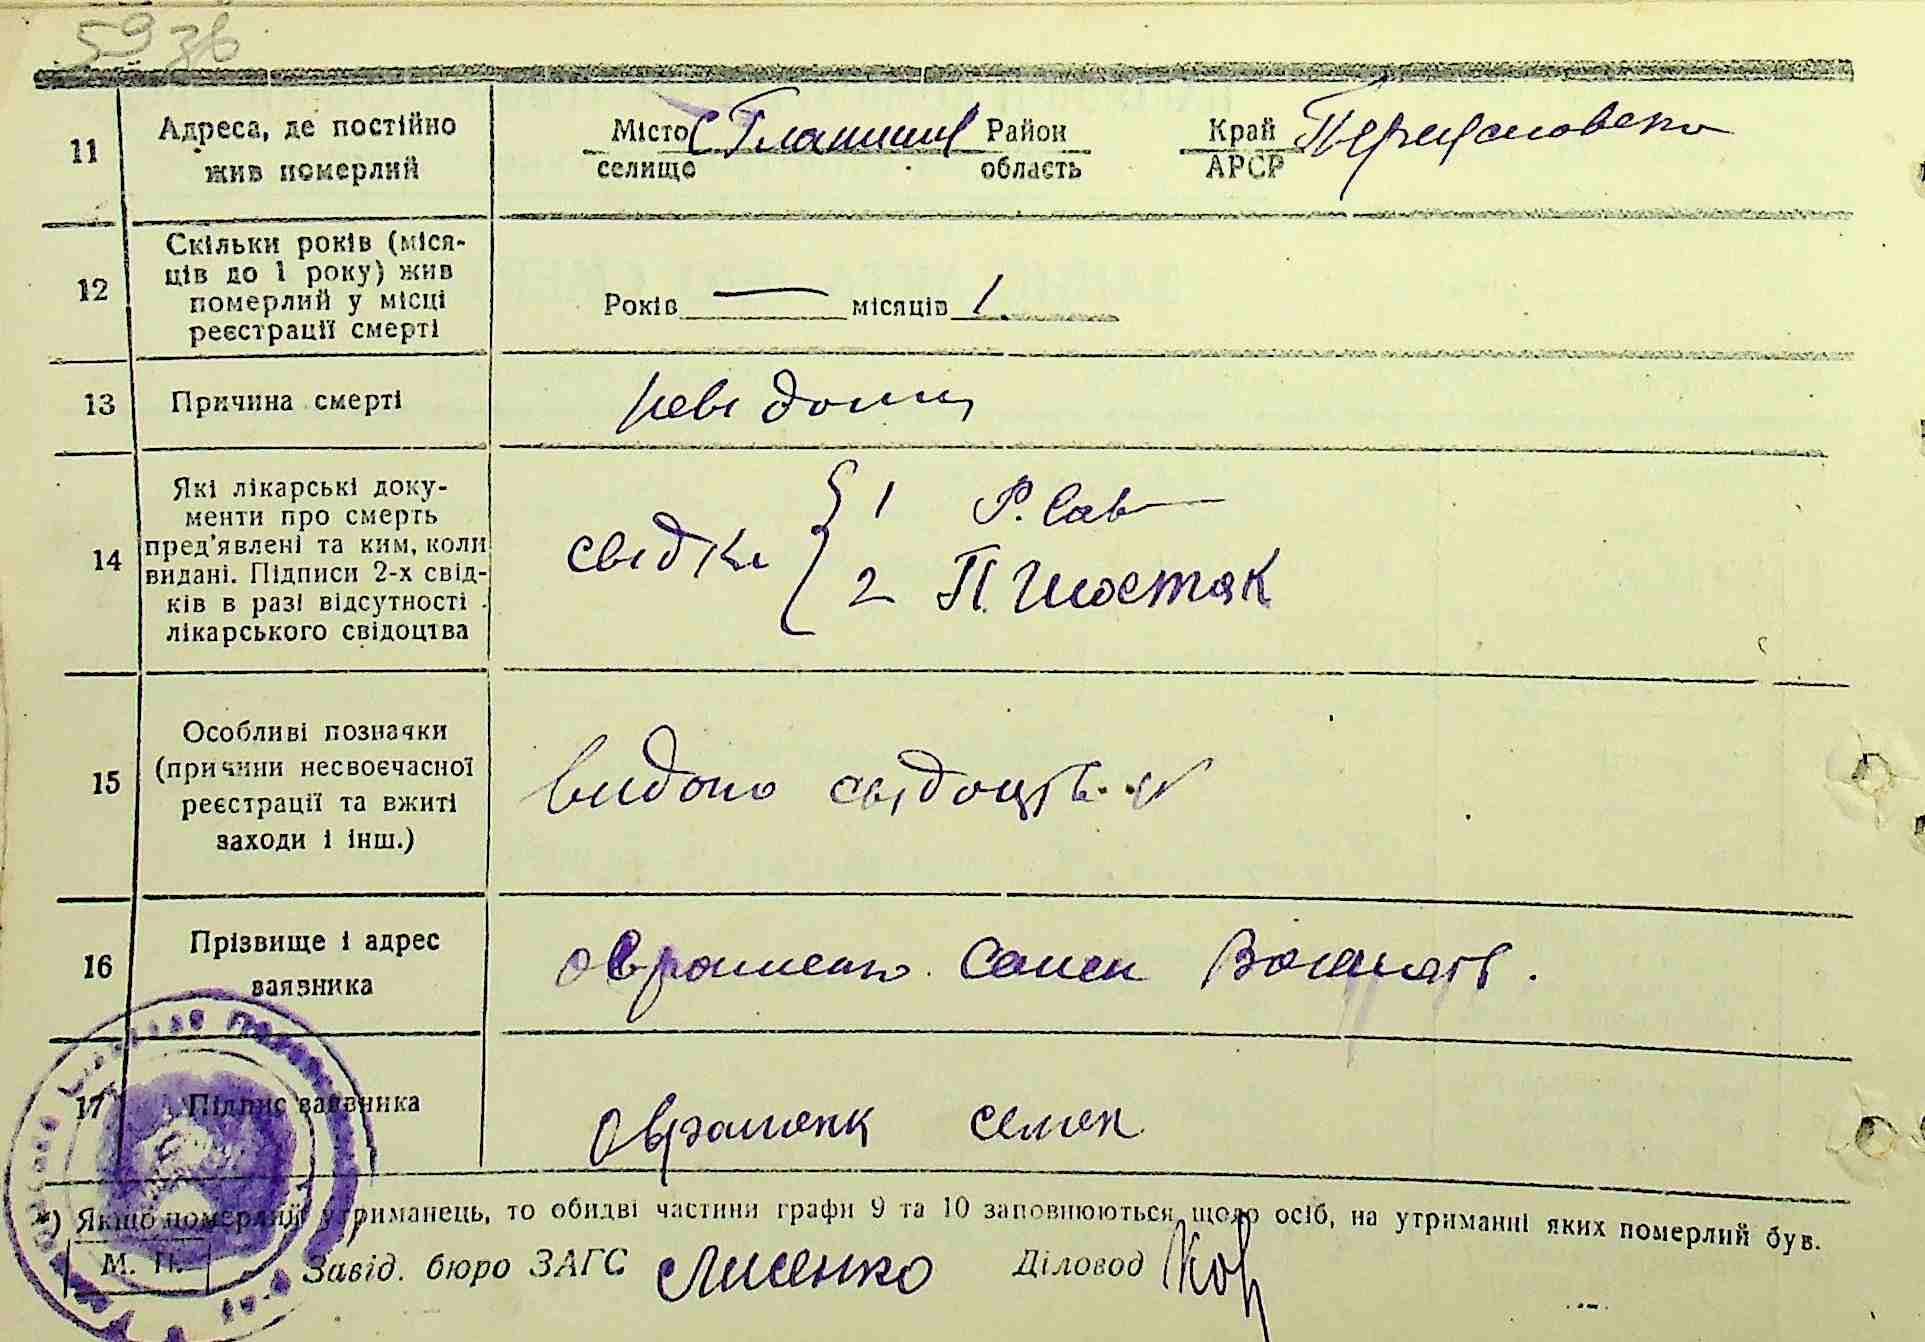 59 зв
11 Адреса, де постійно жив померлий Місто селище с Гланишів Район область Край АРСР
12 Скільки років (місяців до 1 року) жив померлий у місці реєстрації смерті Років — місяців 1.
13 Причина смерті невідома
14 Які лікарські документи про смерть пред'явлені та ким, коли видані. Підписи 2-х свідків в разі відсутності лікарського свідоцтва свідки { 1 Р. Сав
2 П. Шостак
15 Особливі позначки (причини несвоєчасної реєстрації та вжиті заходи і інш.) видано свідоцтв.
16 Прізвище і адрес заявника Овраменко Семен
17 Підпис заявника Овраменк семен
*) Якщо померлий утриманець, то обидві частини графи 9 та 10 заповнюються щодо осіб, на утриманні яких померлий був.
М. П. Завід. бюро ЗАГС Лисенко Діловод Кор